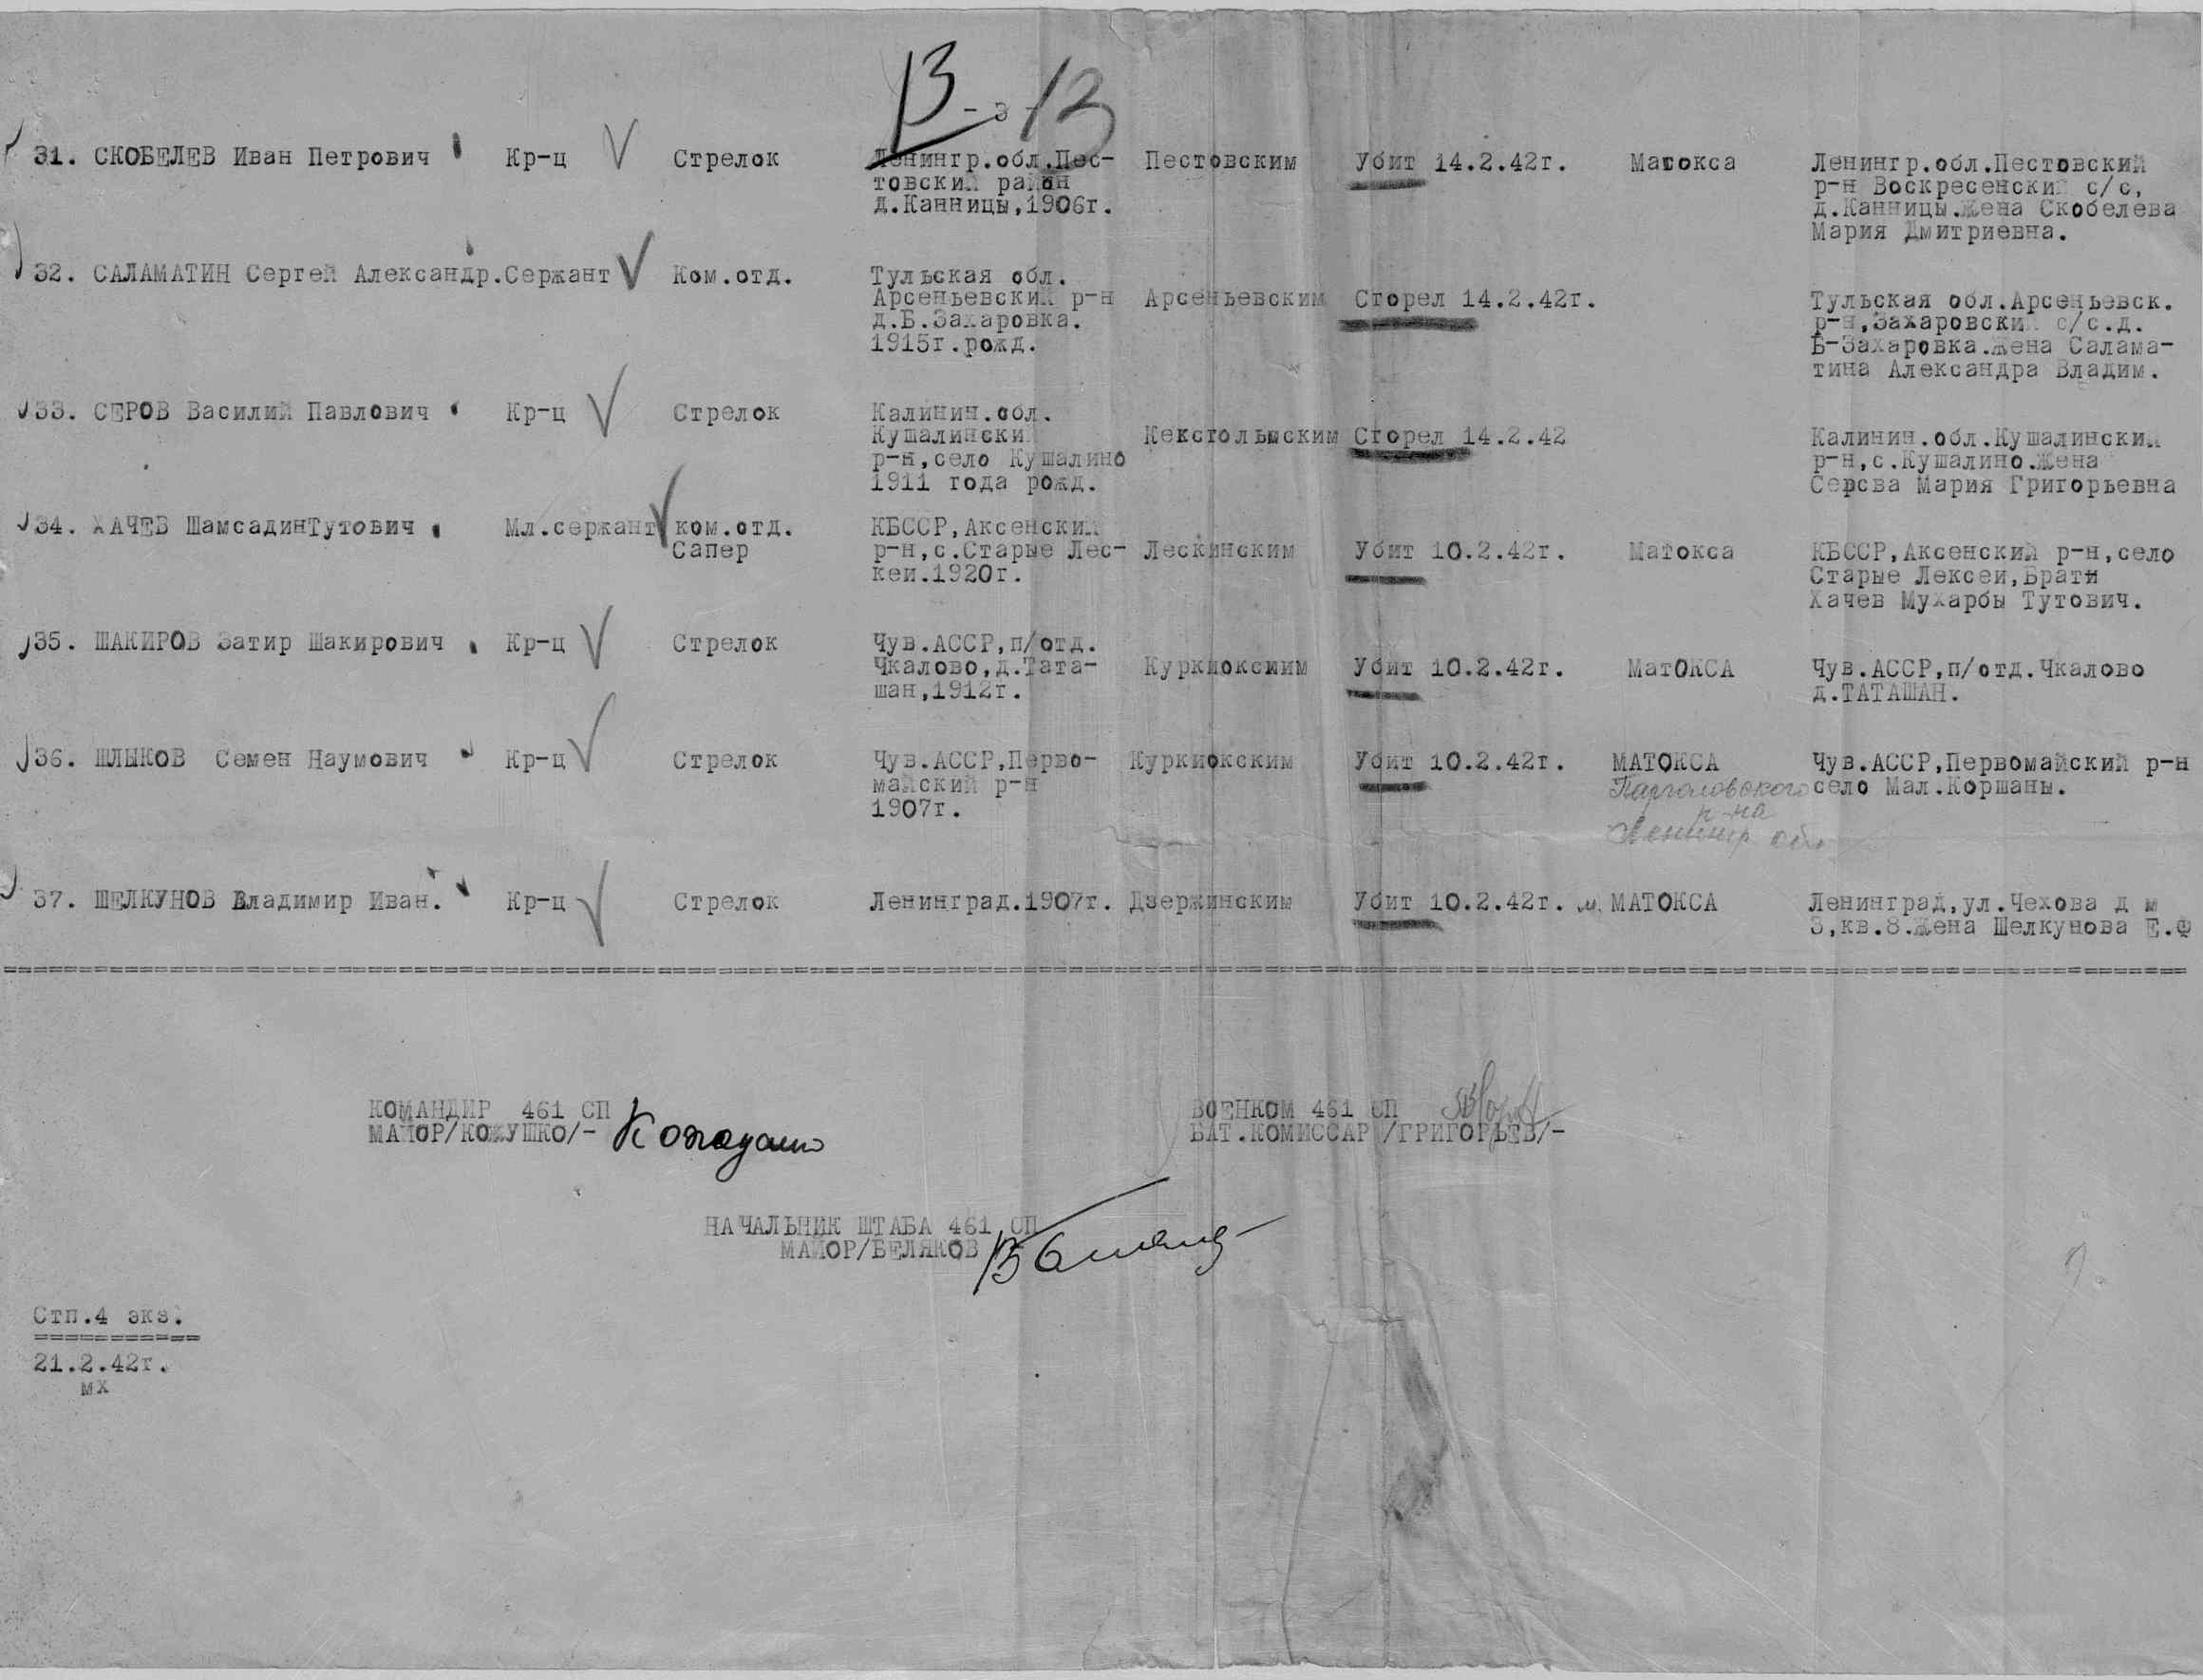 13 - 3 - 13
31. СКОБЕЛЕВ Иван Петрович Кр-ц Стрелок Ленингр.обл.Пес- Пестовским Убит 14.2.42г. Матокса Ленингр.обл.Пестовский
товский район р-н Воскресенский с/с,
д.Канницы,1906г. д.Канницы.Жена Скобелева
Мария Дмитриевна.
32. САЛАМАТИН Сергей Александр.Сержант Ком.отд. Тульская обл.
Арсеньевский р-н Арсеньевским Сгорел 14.2.42г. Тульская обл.Арсеньевск.
д.Б.Захаровка. р-н,Захаровский с/с.д.
1915г.рожд. Б-Захаровка.Жена Салама-
тина Александра Владим.
33. СЕРОВ Василий Павлович Кр-ц Стрелок Калинин.обл.
Кушалински Кекстольмским Сгорел 14.2.42 Калинин.обл.Кушалинский
р-н,село Кушалино р-н,с.Кушалино.Жена
1911 года рожд. Серова Мария Григорьевна
34. ХАЧЕВ ШамсадинТутович Мл.сержант ком.отд. КБССР,Аксенский
Сапер р-н,с.Старые Лес- Лескинским Убит 10.2.42г. Матокса КБССР,Аксенский р-н,село
кеи.1920г. Старые Лексеи,Брати
Хачев Мухарбы Тутович.
35. ШАКИРОВ Затир Шакирович Кр-ц Стрелок Чув.АССР,п/отд.
Чкалово,д.Тата- Куркиокским Убит 10.2.42г. МатОКСА Чув.АССР,п/отд.Чкалово
шан,1912г. д.ТАТАШАН.
36. ШЛЫКОВ Семен Наумович Кр-ц Стрелок Чув.АССР,Перво- Куркиокским Убит 10.2.42г. МАТОКСА Чув.АССР,Первомайский р-н
майский р-н Парголовского село Мал.Коршаны.
1907г. р-на
Ленингр обл.
37. ШЕЛКУНОВ Владимир Иван. Кр-ц Стрелок Ленинград.1907г. Дзержинским Убит 10.2.42г. м. МАТОКСА Ленинград,ул.Чехова д м
3,кв.8.Жена Шелкунова Е.Ф
КОМАНДИР 461 СП ВОЕНКОМ 461 СП
МАЙОР/КОЖУШКО/- Кожушко БАТ.КОМИССАР /ГРИГОРЬЕВ/-
НАЧАЛЬНИК ШТАБА 461 СП
МАЙОР/БЕЛЯКОВ
Стп.4 экз.
===========
21.2.42г.
мх